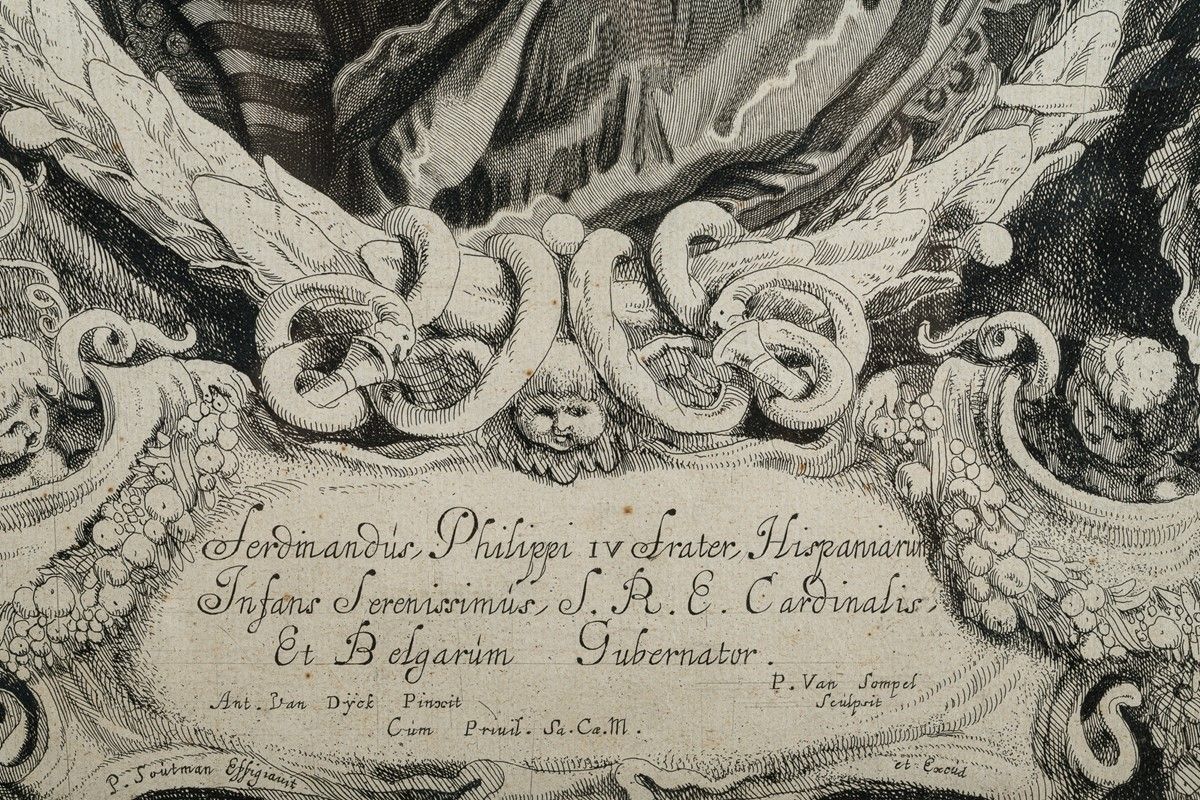 Ferdinandús, Philippi IV Frater, Hispaniarum
Infans Serenissimús, S. R. E. Cardinalis,
Et Belgarúm Gubernator.
Ant. Van Dÿck Pinxit
P. Van Sompel
Sculpsit
Cúm Privil. Sa. Cæ. M.
P. Soútman Effigiavit et Excúd